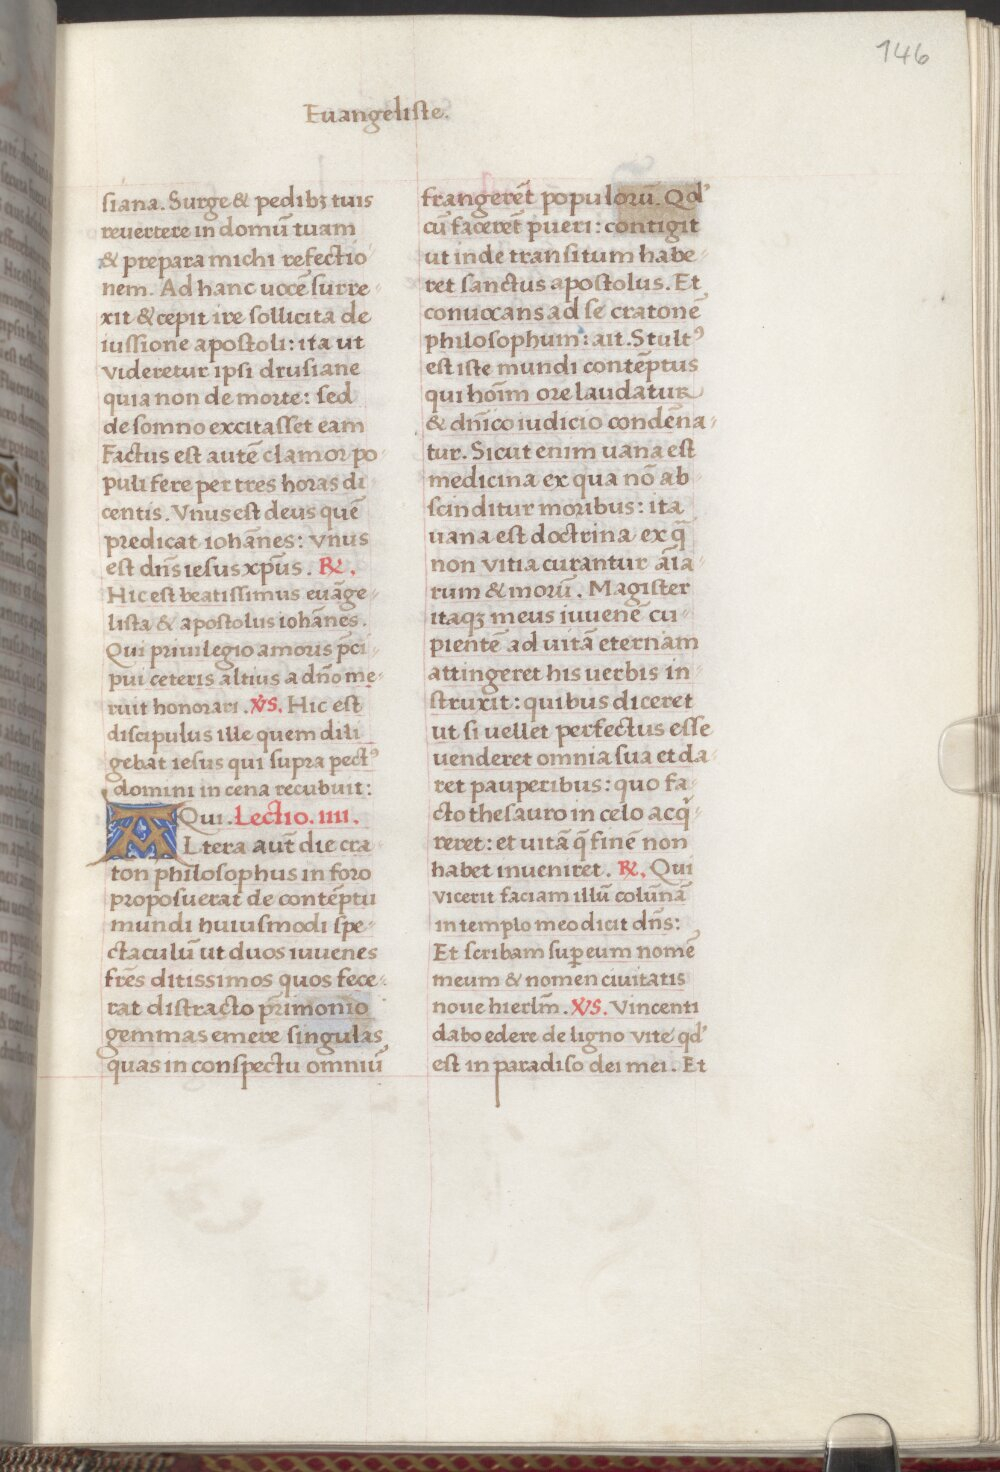 146
Euangeliste.
siana. Surge & pedibꝫ tuis
reuertere in domū tuam
& prepara michi refectio
nem. Ad hanc uocē surre
xit & cepit ire sollicita de
iussione apostoli: ita ut
videretur ipsi drusiane
quia non de morte: sed
de somno excitasset eam
Factus est autē clamor po
puli fere per tres horas di
centis. Vnus est deus quē
predicat iohānes: vnus
est dn̄s iesus xp̄us. ℟.
Hic est beatissimus euāge
lista & apostolus iohānes.
Qui priuilegio amoris p̄ci
pui ceteris altius a dn̄o me
ruit honorari. ℣s. Hic est
discipulus ille quem dili
gebat iesus qui supra pectꝰ
domini in cena recubuit:
Qui. Lectio. IIII.
ALtera aut̄ die cra
ton philosophus in foro
proposuerat de contēptu
mundi huiusmodi spe
ctaculū ut duos iuuenes
fr̄es ditissimos quos fece
rat distracto p̄rimonio
gemmas emere singulas
quas in conspectu omniū
frangerēt populorū. Qd'
cū facerēt pueri: contigit
ut inde transitum habe
ret sanctus apostolus. Et
conuocans ad se cratonē
philosophum: ait. Stultꝰ
est iste mundi contēptus
qui hoīm ore laudatur
& dn̄ico iudicio condēna
tur. Sicut enim uana est
medicina ex qua nō ab
scinditur moribus: ita
uana est doctrina ex q̄
non vitia curantur āīa
rum & morū. Magister
itaqꝫ meus iuuenē cu
pientē ad uitā eternam
attingeret his uerbis in
struxit: quibus diceret
ut si vellet perfectus esse
uenderet omnia sua et da
ret pauperibus: quo fa
cto thesauro in celo acq̄
reret: et uitā q̄ finē non
habet inueniret. ℟. Qui
vicerit faciam illū colūnā
in templo meo dicit dn̄s:
Et scribam suꝑ eum nomē
meum & nomen ciuitatis
noue hierl̄m. ℣s. Vincenti
dabo edere de ligno vite qd'
est in paradiso dei mei. Et